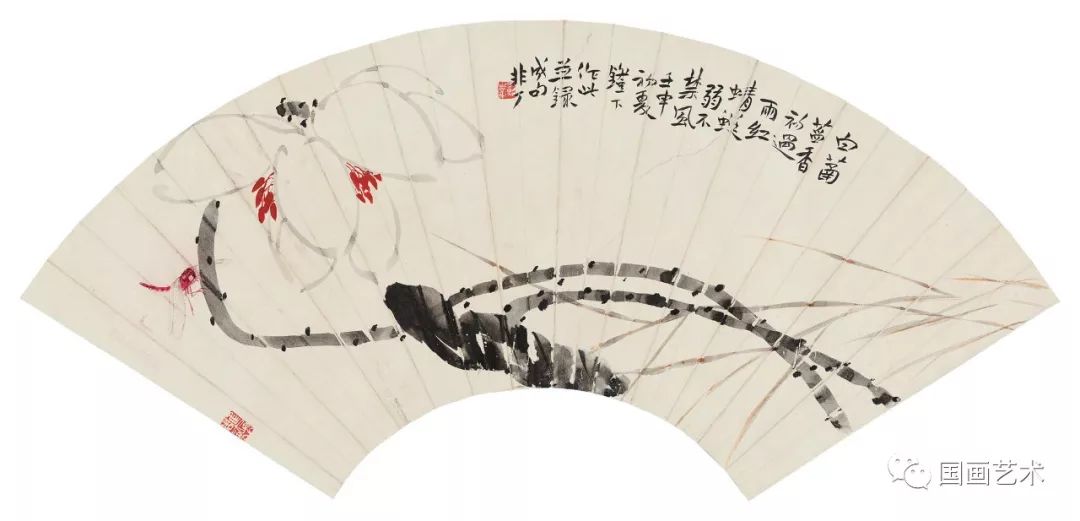 白菡
萏香
初過
雨紅
蜻蜓
弱不
禁風
壬申
初夏
鐙下
作此
並錄
成句
非厂
国画艺术